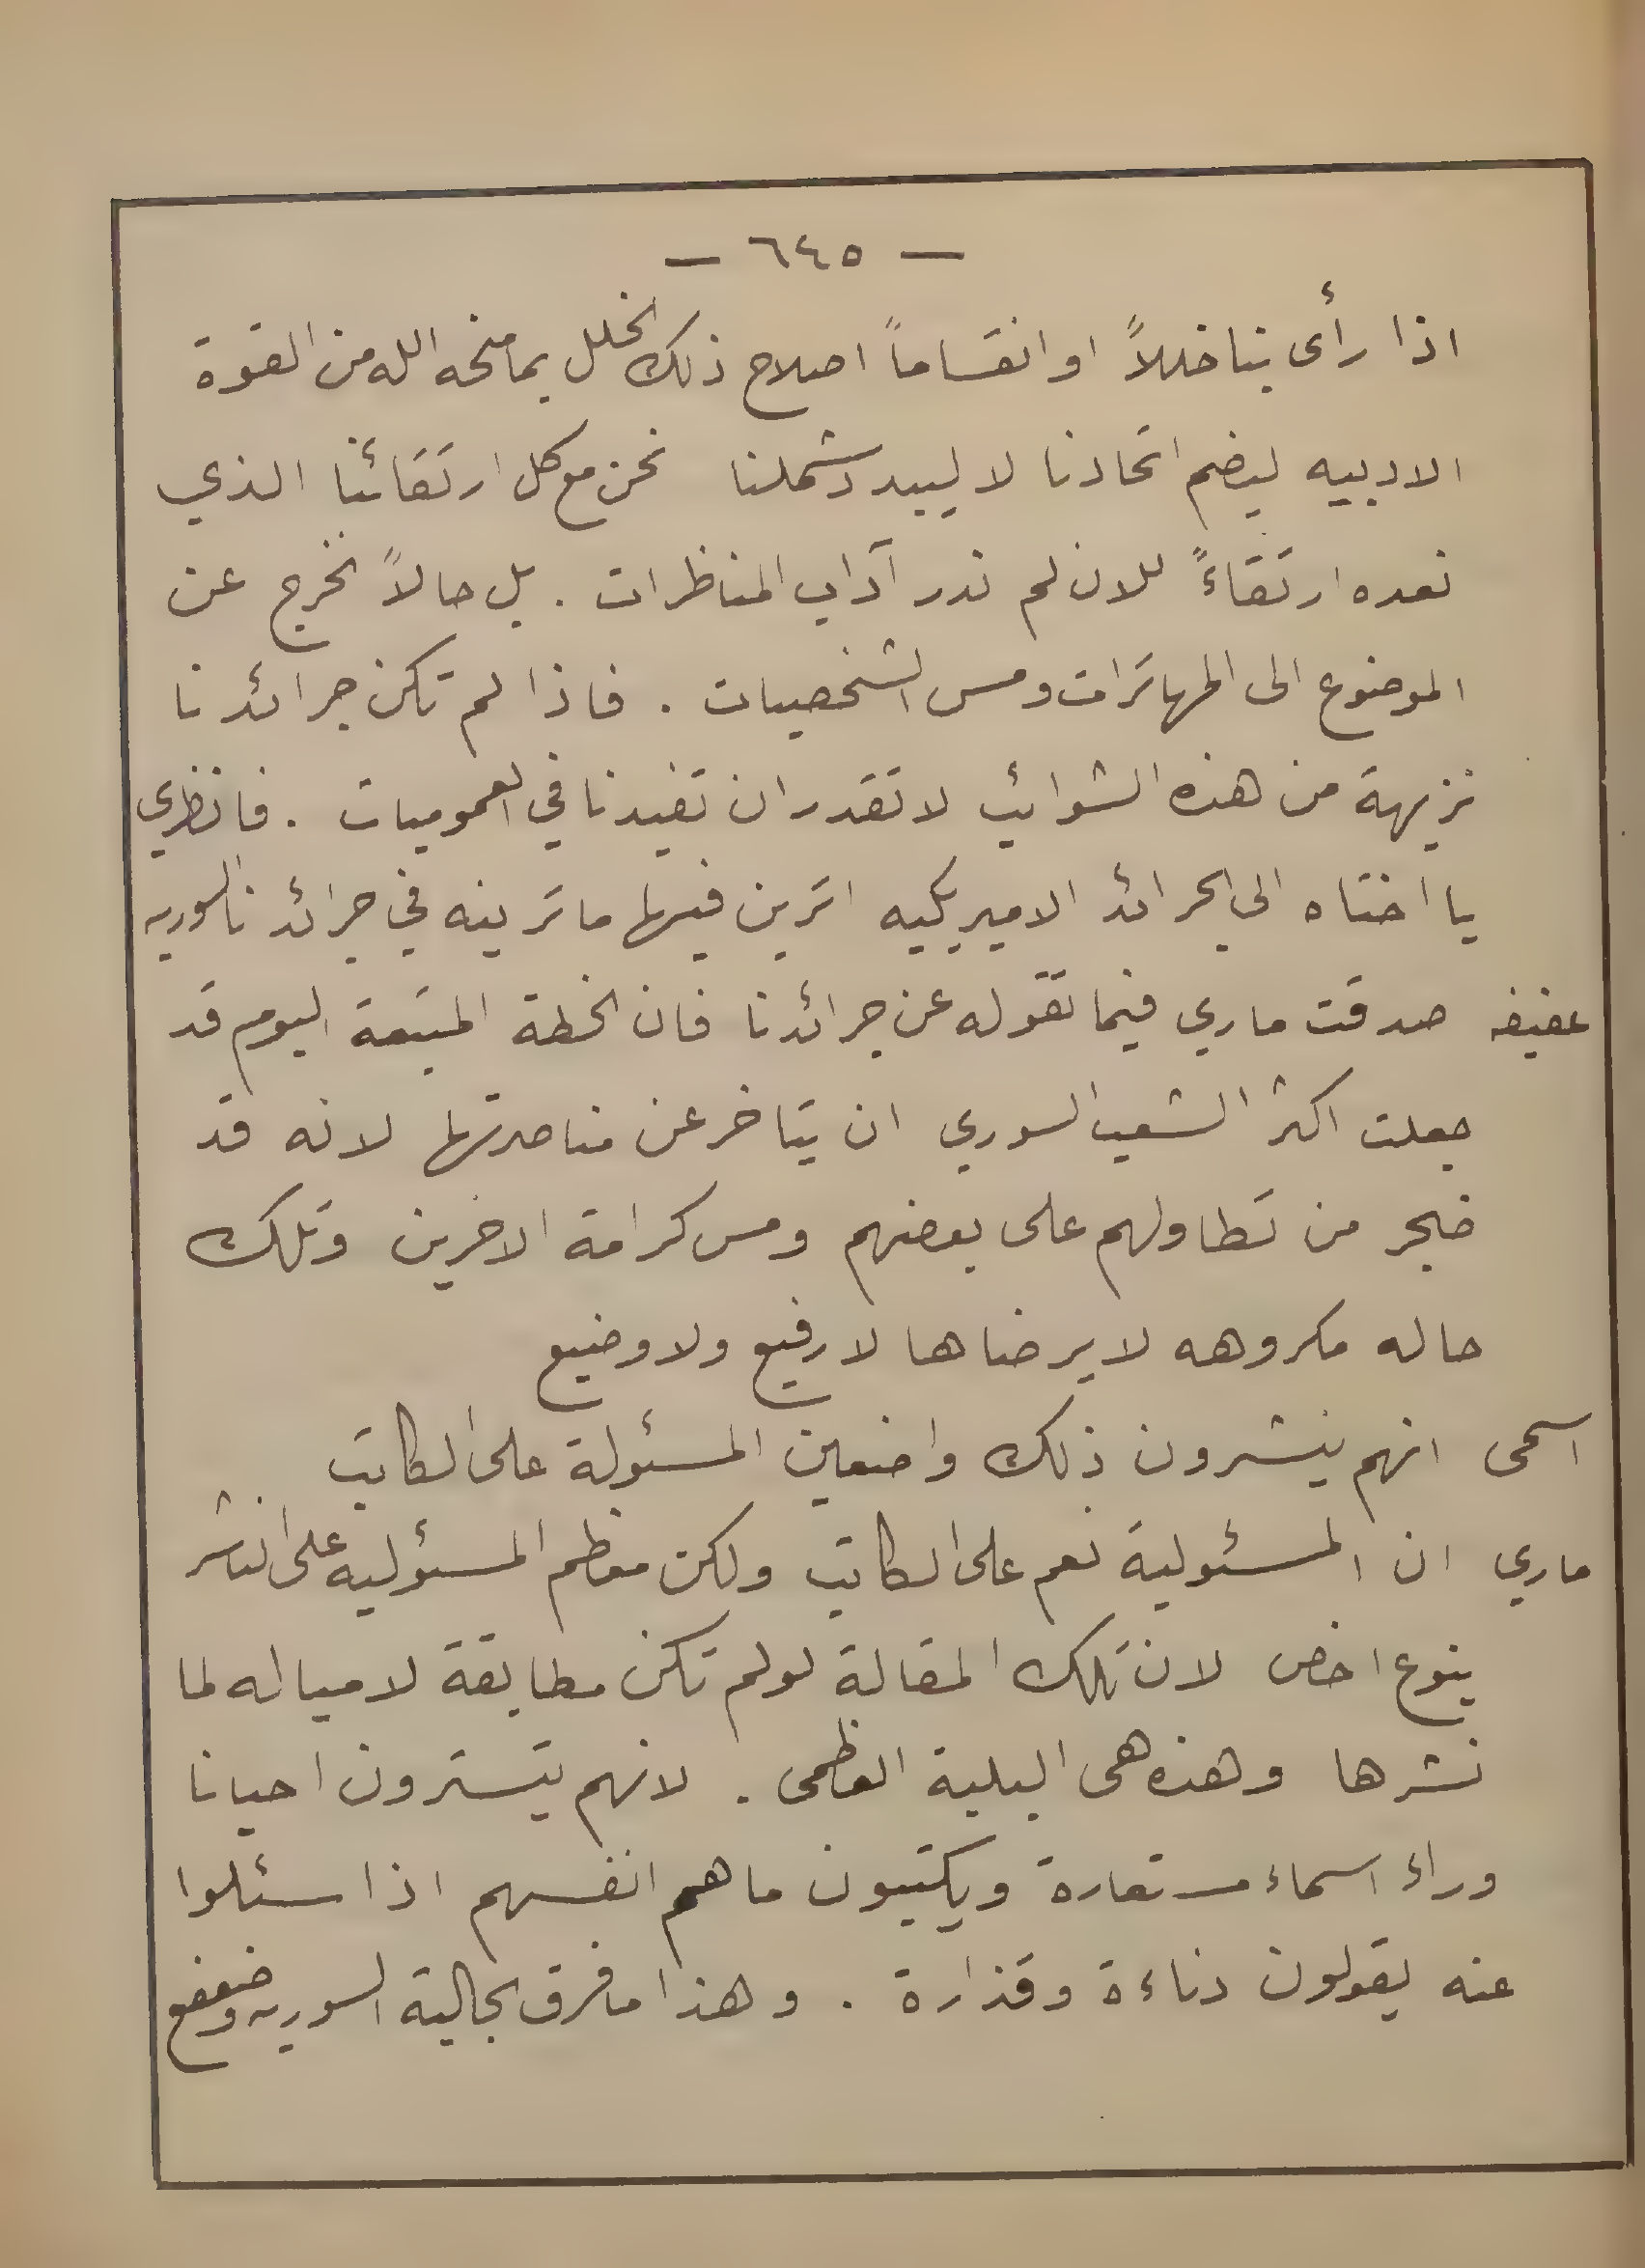 — ٦٤٥ —
اذا رأى بنا خللاً او انقساماً اصلاح ذلك الخلل بما منحه الله من القوة
الادبيه ليضم اتحادنا لا ليبدد شملنا نحن مع كل ارتقائنا الذي
نعده ارتقاءً للان لم ندر آداب المناظرات . بل حالاً نخرج عن
الموضوع الى المهاترات ومس الشخصيات . فاذا لم تكن جرائدنا
نزيهة من هذه الشوائب لا تقدر ان تفيدنا في العموميات . فانظري
يا اختاه الى الجرائد الاميريكيه اترين فيها ما ترينه في جرائدنا السوريه
عفيفه صدقت ماري فيما تقوله عن جرائدنا فان الخطة المتبعة اليوم قد
جعلت اكثر الشعب السوري ان يتاخر عن مناصرتها لانه قد
ضجر من تطاولهم على بعضهم ومس كرامة الاخرين وتلك
حاله مكروهه لا يرضاها لا رفيع ولا وضيع
اسمى انهم ينشرون ذلك واضعين المسئولة على الكاتب
ماري ان المسئولية نعم على الكاتب ولكن معظم المسئوليه على الناشر
بنوع اخص لان تلك المقالة لو لم تكن مطابقة لامياله لما
نشرها وهذه هى البلية العظمى . لانهم يتسترون احيانا
وراء اسماء مستعارة ويكتبون ما هم انفسهم اذا سئلوا
عنه يقولون دناءة وقذارة . وهذا ما فرق الجالية السوريه وضعضع